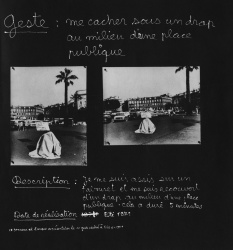 Geste : me cacher sous un drap
au milieu d'une place
publique
Description : Je me suis assis sur un
tabouret et me suis recouvert
d'un drap au milieu d'une place
publique. cela a duré 5 minutes
Date de réalisation Eté 1971